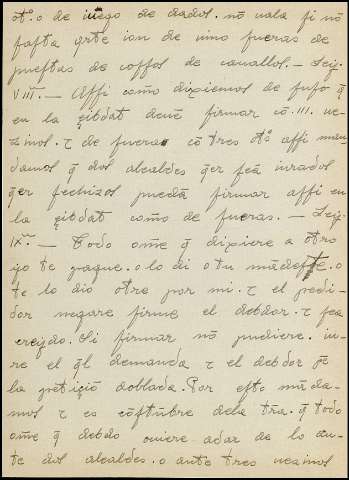 otº. o de iuego de dados. nō uala si nō
fasta q̄rteion de uino fueras de
pueſtas de coſſos de cauallos. — Ley.
VIIIª. — Aſſi como dixiemos de ſuſo q̄
en la çibdat deue firmar cō .III. ue-
zinos. τ de fuera cō tres otºs aſſi man
damos q̄ dos alcaldes q̄er ſeā iurados
q̄er fechizos puedā firmar aſſi en
la çibdat como de fueras. — Ley.
IXª. — Todo ome q̄ dixiere a otro
yo te pague. o lo di o tu mādeste. o
te lo dio otre por mi. τ el pedi-
dor negare firme el debdor. τ ſea
creydo. Si firmar nō pudiere. iu-
re el q̄l demanda τ el debdor pē
la petiçiō doblada. Por esto māda-
mos τ es coſtūbre dela tr̄a. q̄ todo
ome q̄ debdo ouiere adar de lo an-
te dos alcaldes. o ante tres uezinos